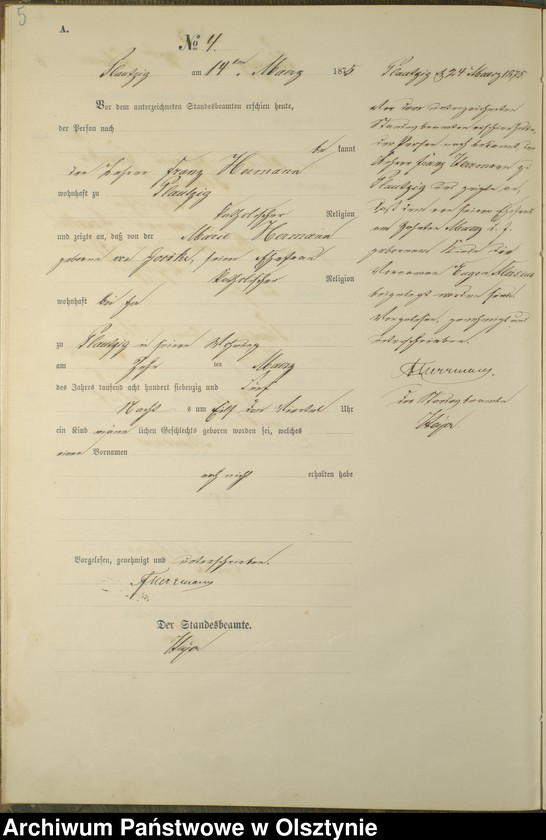 5
A.
№ 4.
Plautzig am 14ten März 1875
Vor dem unterzeichneten Standesbeamten erschien heute,
der Person nach
be kannt
der Lehrer Franz Hermann
wohnhaft zu Plautzig
katholischer Religion
und zeigte an, daß von der Marie Hermann
geborene seine Ehefrau
katholischer Religion
wohnhaft bei ihm
zu Plautzig in seiner Wohnung
am Zehn ten März
des Jahres tausend acht hundert siebenzig und fünf
Nachts um Uhr
ein Kind männ lichen Geschlechts geboren worden sei, welches
einen Vornamen
noch nicht erhalten habe
Vorgelesen, genehmigt und unterschrieben.
Herrmann
Der Standesbeamte.
Plautzig d 24 März 1875
Vor dem unterzeichneten
Standesbeamten erschien heute,
der Person nach bekannt, der
Lehrer Franz Hermann zu
Plautzig und zeigte an,
daß dem von seiner Ehefrau
am Zehnten März d. J.
geborenen Kinde die
Vornamen Eugen
beigelegt worden
Vorgelesen, genehmigt und
unterschrieben.
Herrmann.
Der Standesbeamte
Archiwum Państwowe w Olsztynie